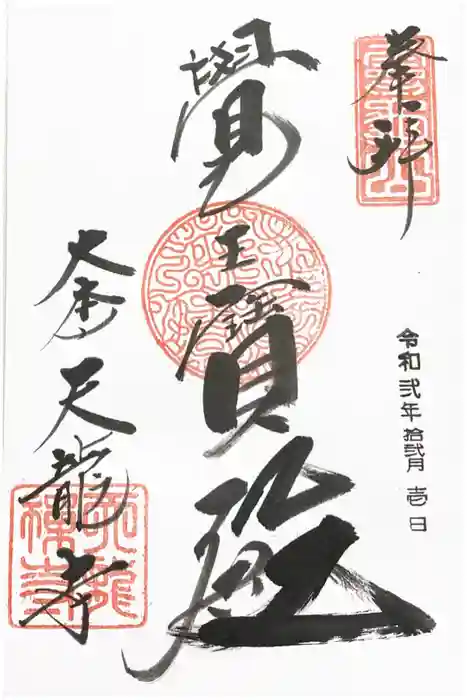 奉拝
令和弐年拾弐月壱日
覺王寶殿
大本山天龍寺